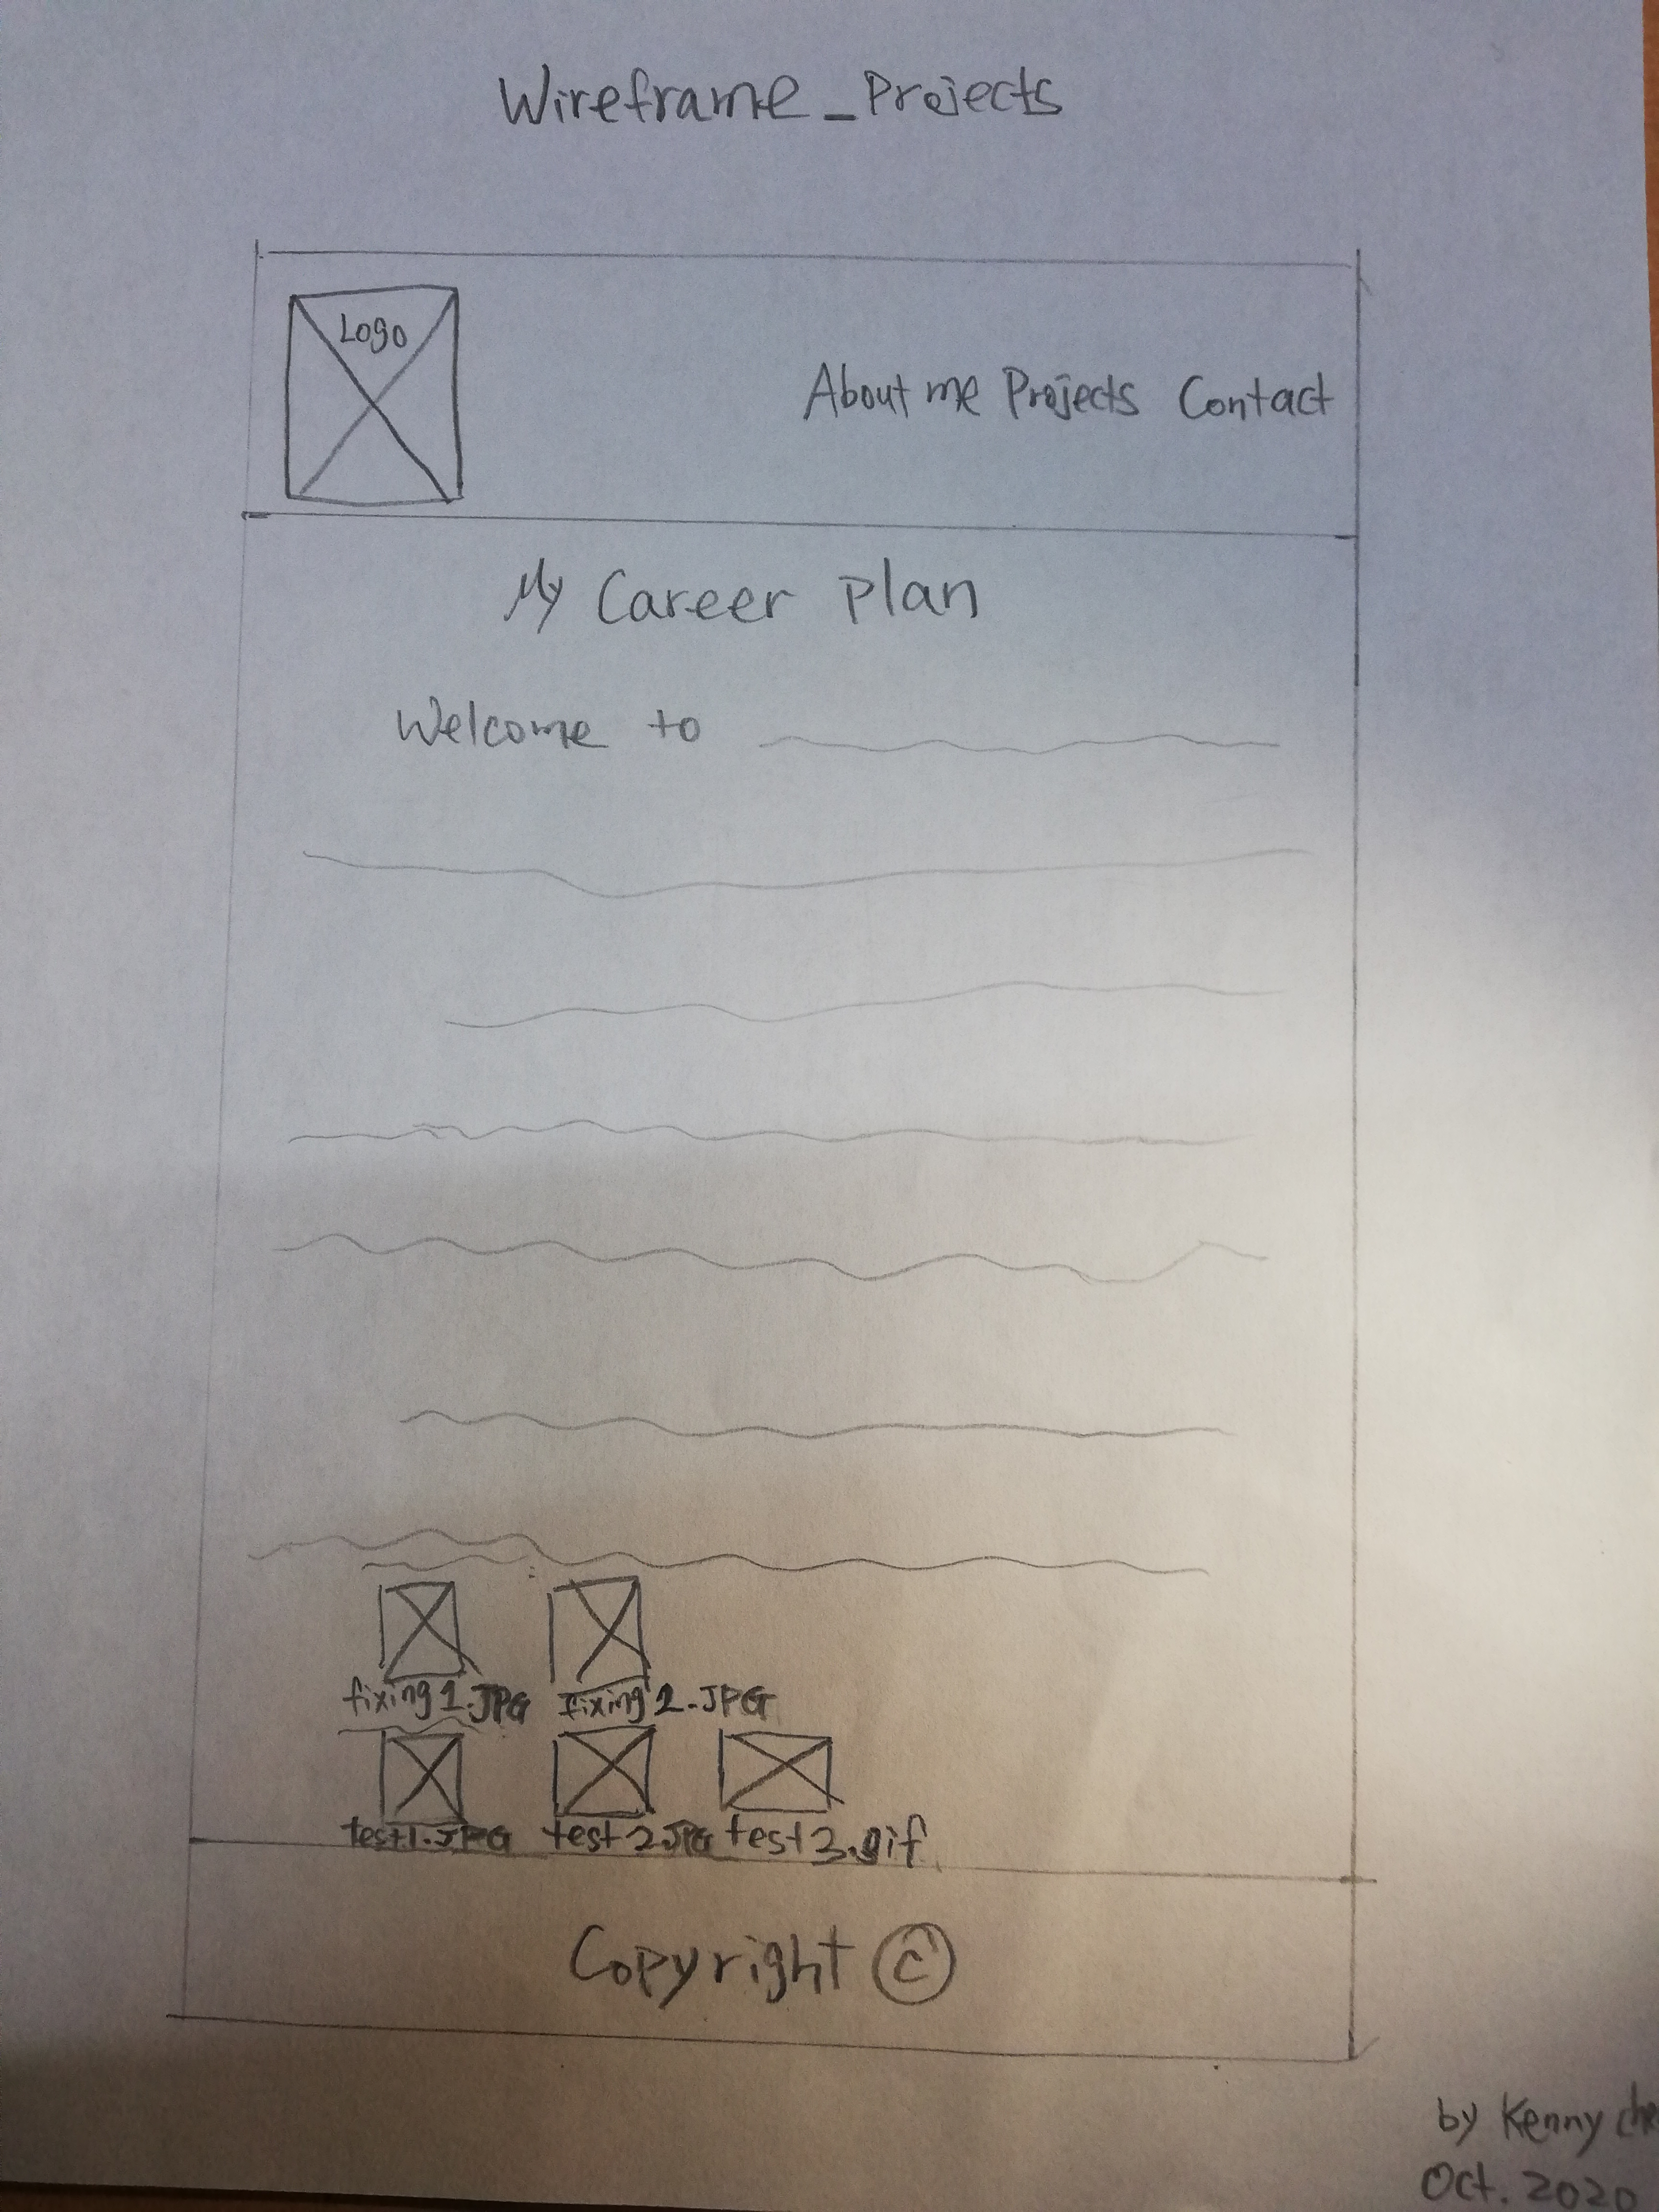 Wireframe_Projects
Logo
About me Projects Contact
My Career Plan
Welcome to
fixing1.JPG fixing2.JPG
test1.JPG test2.JPG test3.gif
Copyright ©
by Kenny
Oct. 2020